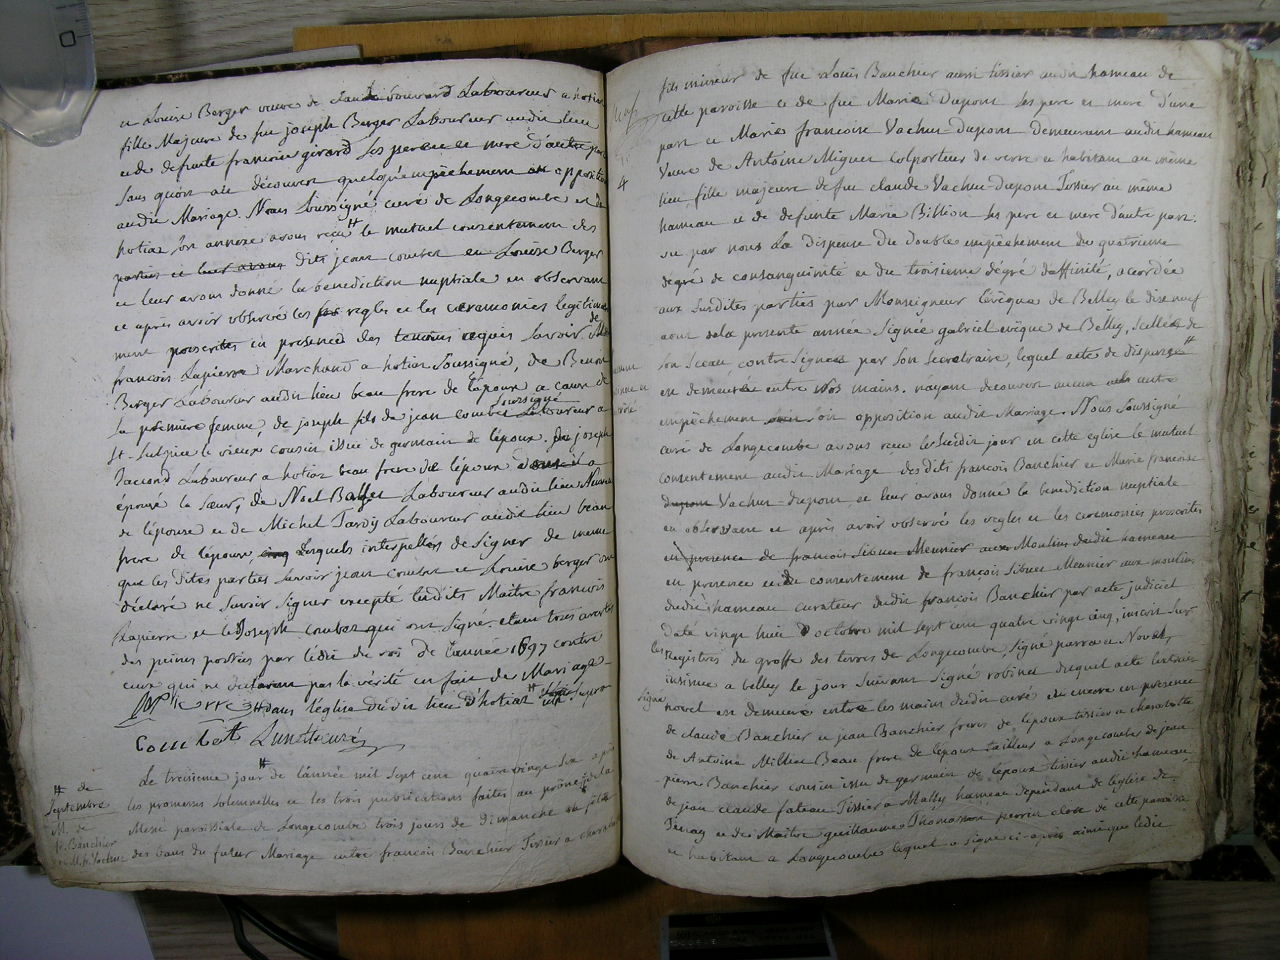 et Louise Berger veuve de claude bouvard Laboureur a hotiaz
fille Majeure de feu joseph Berger Laboureur audit lieu
et de defunte francoise girard Ses pere et mere d'autre part
sans qu'on ait découvert quelqu'empêchement ou opposition
audit Mariage. Nous Soussigné curé de Longecombe et de
hotiaz son annexe avons reçu # le mutuel consentement des
parties et leur avons dits jean combet et Louise Berger
et leur avons donné la bénédiction nuptiale en observant
et apres avoir observé les regles et les ceremonies legitime
ment prescrites en presence des temoins requis savoir de
francois Lapierre Marchand a hotiaz Soussigné, de Benoit
Berger Laboureur audit lieu beau frere de l'époux a cause de
sa premiere femme, de joseph fils de jean combet Soussigné Laboureur a
St. Sulpice le vieux cousin issue de germain de l'époux. de joseph
Jacond Laboureur a hotiaz beau frere de l'époux
épouse la soeur, de Noel Ballet Laboureur audit lieu Neveu
de l'épouse et de Michel Tardy Laboureur audit lieu beau
frere de l'epoux, cinq Lesquels interpellés de Signer de meme
que les dites parties Savoir jean combet et Louise berger ont
déclaré ne Savoir Signer excepté ledits Maitre francois
Lapierre et le Joseph combet qui ont Signé. etant tous avertis
des peines portées par l'édit du roi de l'année 1697 contre
ceux qui ne diroient pas la vérité en fait de Mariage
Lapierre # dans l'église dudit lieu d'hotiaz #
Combet
# de
Septembre
M. de
fr. Bauchier
et M. fr. Vacher
Le treisieme jour # de l'année mil Sept cent quatre vingt Six après
les promesses Solemnelles et les trois publications faites au prône de la
Messe paroissiale de Longecombe trois jours de dimanche ou fêtes
des bans du futur Mariage entre françois Bauchier Tissier a
fils mineur de feu Louis Bauchier aussi tissier audit hameau de
cette paroisse et de feu Marie Dupont Ses pere et mere d'une
part et Marie francoise Vacher-Dupont Demeurant audit hameau
4
Veuve de Antoine Miguet colporteur de verre et habitant au même
lieu fille majeure de feu claude Vacher-Dupont Tissier au même
hameau et de defunte Marie Billion Ses pere et mere d'autre part.
vu par nous La Dispense du double empêchement du quatrieme
dégré de consanguinité et du troisieme dégré d'affinité, acordée
aux Susdites parties par Monseigneur L'évêque de Belley le dix neuf
aout de la presente année Signée gabriel evêque de Belley, Scellée de
Son Sceau contre Signée par Son Secretraire, lequel acte de dispense #
est demeurée entre Nos mains. n'ayant découvert aucun autre
empêchement soit opposition audit Mariage. Nous Soussigné
curé de Longecombe avons reçu le Susdit jour en cette eglise le mutuel
consentement audit Mariage desdits francois Bauchier et Marie francoise
dupont Vacher-dupont et leur avons donné la benediction nuptiale
en observant et après avoir observé les regles et les ceremonies prescrites
en presence de francois Sibuet Meunier aux Moulins dudit hameau
en presence et du consentement de françois Sibuet Meunier aux moulins
dudit hameau curateur dudit françois Bauchier par acte judiciel
Daté vingt huit d'octobre mil sept cent quatre vingt cinq, inscrit Sur
les Registres du greffe des terres de Longecombe, Signé parra et Novel,
insinué a belley le jour Suivant Signé robinet duquel acte l'extrait
Signé novel est demeuré entre les mains dudit curé. ou encore en presence
de claude Bauchier et jean Bauchier freres de l'époux tissier a
de Antoine Millien Beau frere de l'epoux tailleur a Longecombe de jean
pierre Bauchier cousin issu de germain de l'époux tissier audit hameau
de jean claude fateau Tissier a hameau dependant de l'église de
Tenay et de Maître guillaume Thomasson de cette paroisse
et habitant a Longecombe lequel a signé ci-apres ainsi que ledit